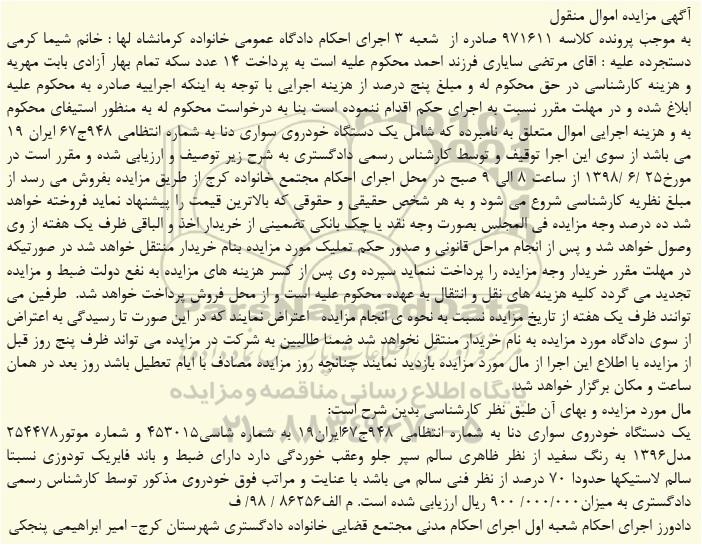 آگهی مزایده اموال منقول
به موجب پرونده کلاسه ۹۷۱۶۱۱ صادره از شعبه ۳ اجرای احکام دادگاه عمومی خانواده کرمانشاه لها : خانم شیما کرمی
دستجرده علیه : اقای مرتضی سایاری فرزند احمد محکوم علیه است به پرداخت ۱۴ عدد سکه تمام بهار آزادی بابت مهریه
و هزینه کارشناسی در حق محکوم له و مبلغ پنج درصد از هزینه اجرایی با توجه به اینکه اجراییه صادره به محکوم علیه
ابلاغ شده و در مهلت مقرر نسبت به اجرای حکم اقدام ننموده است بنا به درخواست محکوم له به منظور استیفای محکوم
به و هزینه اجرایی اموال متعلق به نامبرده که شامل یک دستگاه خودروی سواری دنا به شماره انتظامی ۹۴۸ج۶۷ ایران ۱۹
می باشد از سوی این اجرا توقیف و توسط کارشناس رسمی دادگستری به شرح زیر توصیف و ارزیابی شده و مقرر است در
مورخ۲۵ /۶ /۱۳۹۸ از ساعت ۸ الی ۹ صبح در محل اجرای احکام مجتمع خانواده کرج از طریق مزایده بفروش می رسد از
مبلغ نظریه کارشناسی شروع می شود و به هر شخص حقیقی و حقوقی که بالاترین قیمت را پیشنهاد نماید فروخته خواهد
شد ده درصد وجه مزایده فی المجلس بصورت وجه نقد یا چک بانکی تضمینی از خریدار اخذ و الباقی ظرف یک هفته از وی
وصول خواهد شد و پس از انجام مراحل قانونی و صدور حکم تملیک مورد مزایده بنام خریدار منتقل خواهد شد در صورتیکه
در مهلت مقرر خریدار وجه مزایده را پرداخت ننماید سپرده وی پس از کسر هزینه های مزایده به نفع دولت ضبط و مزایده
تجدید می گردد کلیه هزینه های نقل و انتقال به عهده محکوم علیه است و از محل فروش پرداخت خواهد شد. طرفین می
توانند ظرف یک هفته از تاریخ مزایده نسبت به نحوه ی انجام مزایده اعتراض نمایند که در این صورت تا رسیدگی به اعتراض
از سوی دادگاه مورد مزایده به نام خریدار منتقل نخواهد شد ضمنا طالبین به شرکت در مزایده می تواند ظرف پنج روز قبل
از مزایده با اطلاع این اجرا از مال مورد مزایده بازدید نمایند چنانچه روز مزایده مصادف با ایام تعطیل باشد روز بعد در همان
ساعت و مکان برگزار خواهد شد.
مال مورد مزایده و بهای آن طبق نظر کارشناسی بدین شرح است:
یک دستگاه خودروی سواری دنا به شماره انتظامی ۹۴۸ج۶۷ایران۱۹ به شماره شاسی۴۵۳۰۱۵ و شماره موتور۲۵۴۴۷۸
مدل۱۳۹۶ به رنگ سفید از نظر ظاهری سالم سپر جلو وعقب خوردگی دارد دارای ضبط و باند فابریک تودوزی نسبتا
سالم لاستیکها حدودا ۷۰ درصد از نظر فنی سالم می باشد با عنایت و مراتب فوق خودروی مذکور توسط کارشناس رسمی
دادگستری به میزان۹۰۰ /۰۰۰/۰۰۰ ریال ارزیابی شده است. م الف۸۶۲۵۶ / ۹۸/ ف
دادورز اجرای احکام شعبه اول اجرای احکام مدنی مجتمع قضایی خانواده دادگستری شهرستان کرج- امیر ابراهیمی پنجکی
پایگاه اطلاع رسانی مناقصه و مزایده